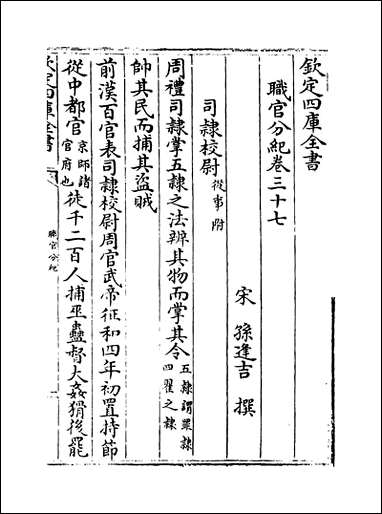 欽定四庫全書
職官分紀卷三十七
宋 孫逢吉 撰
司隸校尉從事附
周禮司隸掌五隸之法辨其物而掌其令五隸謂罪隸四翟之隸
帥其民而捕其盜賊
前漢百官表司隸校尉周官武帝征和四年初置持節
從中都官京師諸官府也徒千二百人捕巫蠱督大姦猾後罷
欽定四庫全書
職官分紀
一